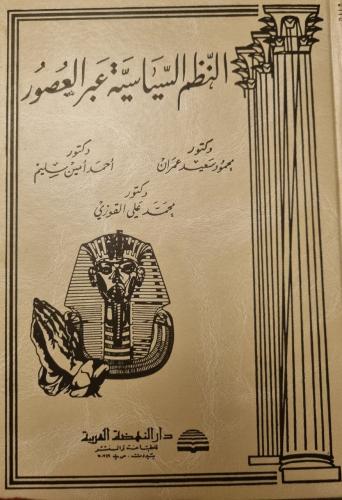 النظم السياسية عبر العصور
دكتور
محمود سعيد عمران
دكتور
أحمد أمين سليم
دكتور
محمد علي القوزي
دار النهضة العربية
للطباعة والنشر
بيروت - ص.ب